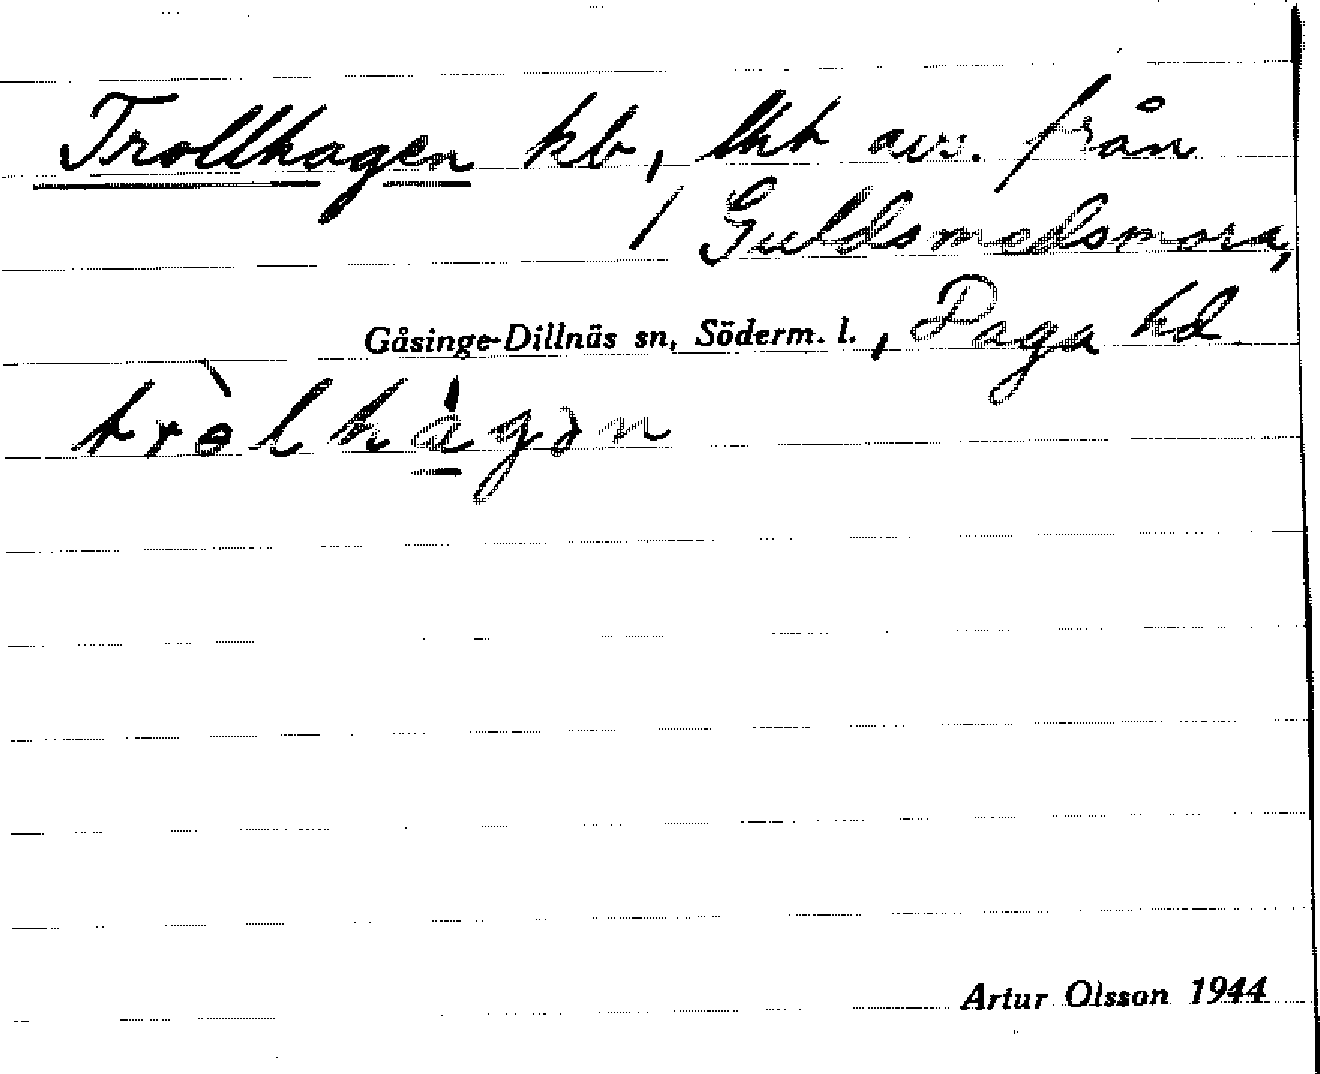 Trollhagen kb, lht avs. från
/ Guldsmedsmora,
Gåsinge-Dillnäs sn, Söderm. l., Daga hd
tròlhàgən
Artur Olsson 1944